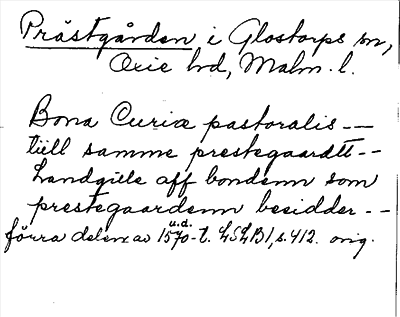 Prästgården i Glostorps sn,
Oxie hd, Malm. l.
Bona Curiæ pastoralis --
tiill samme prestegaardtt --
Landgille aff bondenn som
prestegaardenn besidder --
förra delen av 1570-t. u.d. LSLB1, s. 412. orig.